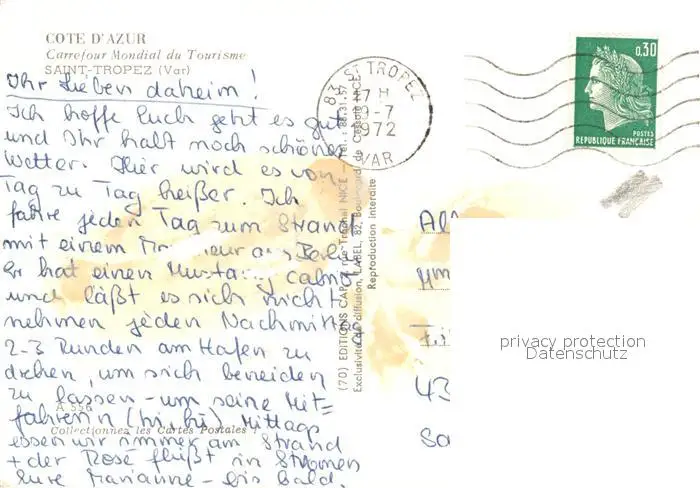 COTE D'AZUR
Carrefour Mondial du Tourisme
SAINT-TROPEZ (Var)
Ihr Lieben daheim!
Ich hoffe Euch geht es gut
und Ihr habt noch schönes
Wetter. Hier wird es von
Tag zu Tag heißer. Ich
fahre jeden Tag zum Strand
mit einem aus Berlin
Er hat einen Mustang Cabrio
und läßt es sich nicht
nehmen jeden Nachmittag
2-3 Runden am Hafen zu
drehen, um sich beneiden
zu lassen - um seine Mit=
fahrerin (hi, hi) Mittags
essen wir immer am Strand
+ der Rosé fließt in Strömen
Eure Marianne - bis bald.
A 556
Collectionnez les Cartes Postales !
(70) EDITIONS CAP, rue NICE
Exclusivité de diffusion, LABEL, 82, Boulevard de Cessole NICE
Reproduction interdite
83 ST TROPEZ
17 H
-7
1972
VAR
0,30
POSTES
REPUBLIQUE FRANÇAISE
43
privacy protection
Datenschutz